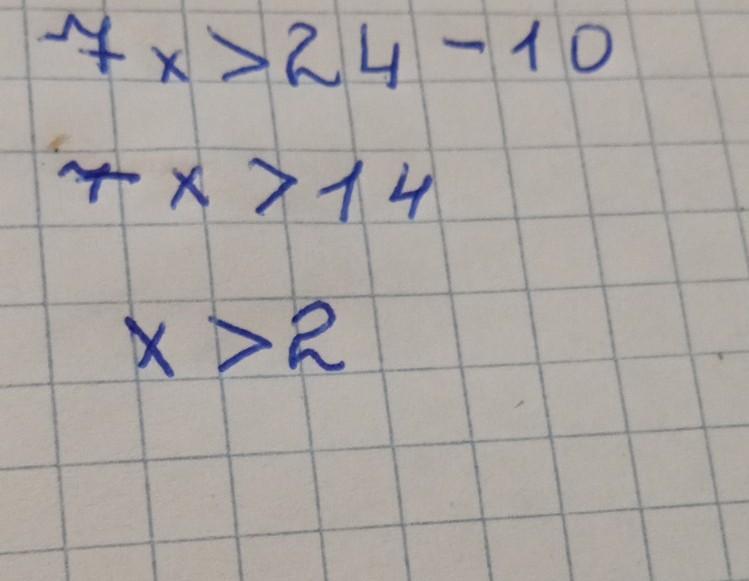 7x > 24 - 10
7x > 14
x > 2